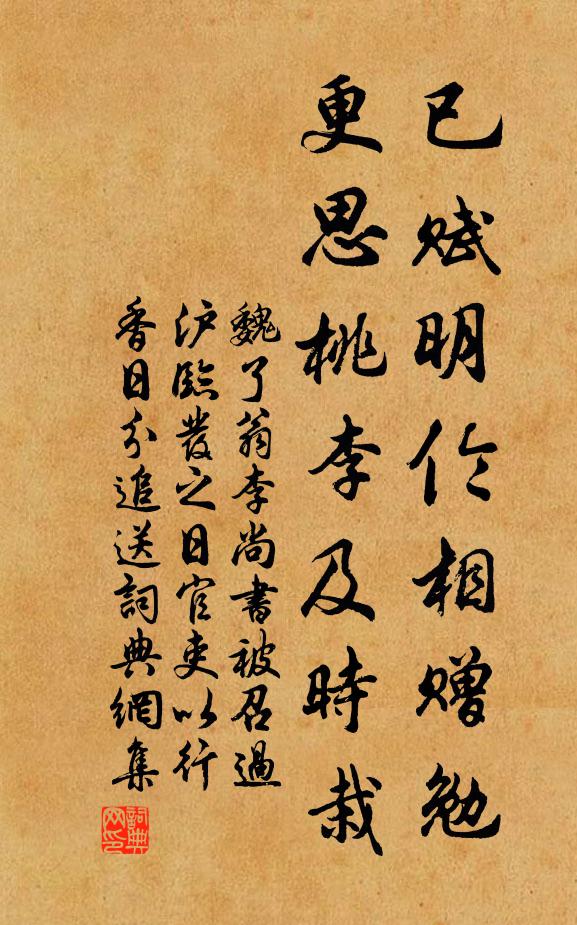 已賦明倫相贈勉
更思桃李及時栽
魏了翁李尚書被召過
沪臨發之日官吏以行
香日分追送詞典網集
詞典网印